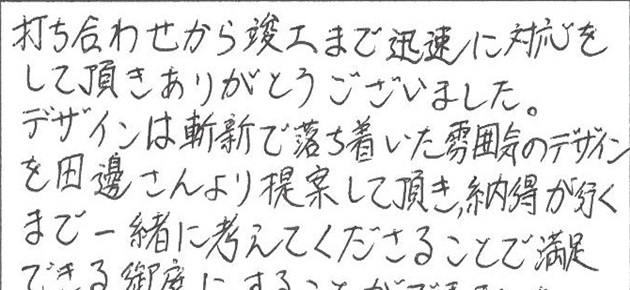 打ち合わせから竣工まで迅速に対応を
して頂きありがとうございました。
デザインは斬新で落ち着いた雰囲気のデザイン
を田邊さんより提案して頂き、納得が行く
まで一緒に考えてくださることで満足
できる御庭にすることができました